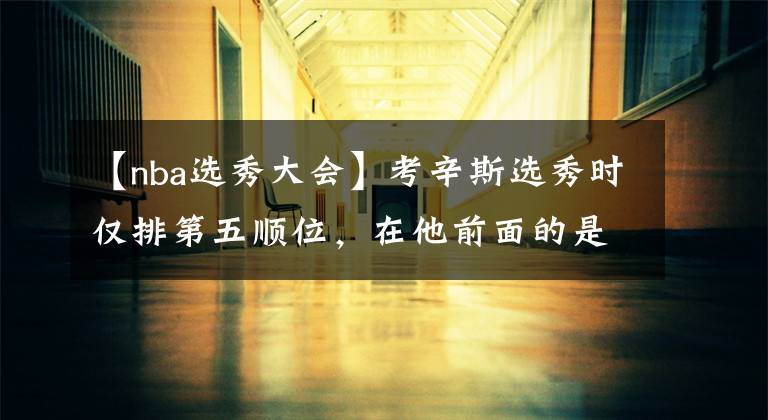 【nba选秀大会】考辛斯选秀时
仅排第五顺位，在他前面的是